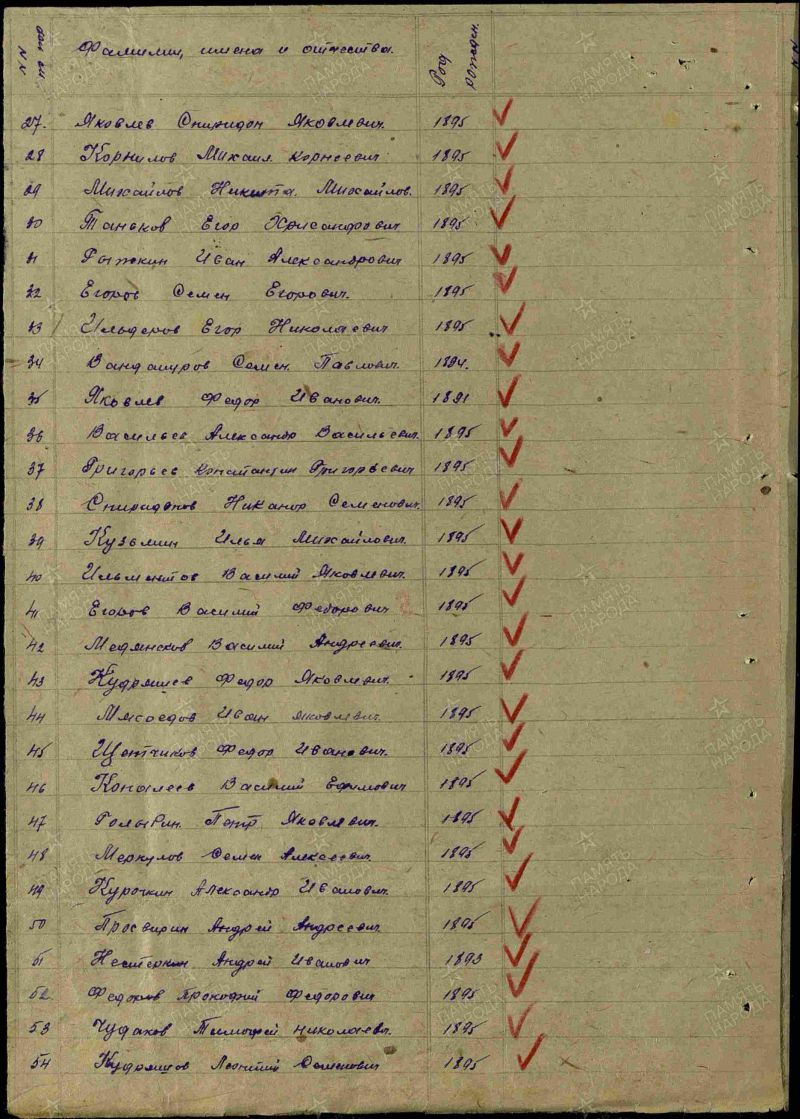 NN Фамилии, имена и отчества. Год рожден.
27. Яковлев Спиридон Яковлевич. 1895
28 Корнилов Михаил Корнеевич 1895
29 Михайлов Никита Михайлов. 1895
30 Таньков Егор Хрисанфрович 1895
31 Рыжкин Иван Александрович 1895
32 Егоров Семен Егорович. 1895
33 Ильдеров Егор Николаевич 1895
34 Вандашуров Семен Павлович. 1894.
35 Яковлев Федор Иванович. 1891
36 Васильев Александр Васильевич. 1895
37 Григорьев Константин Григорьевич 1895
38 Спиридонов Никанор Семенович. 1895
39 Кузьмин Илья Михайлович. 1895
40 Ильментов Василий Яковлевич. 1895
41 Егоров Василий Федорович 1895
42 Медянсков Василий Андреевич. 1895
43 Кудряшев Федор Яковлевич. 1895
44 Мясоедов Иван Яковлевич. 1895
45 Щетчиков Федор Иванович. 1895
46 Коналеев Василий Ефимович 1895
47 Голырин Петр Яковлевич. 1895
48 Меркулов Семен Алексеевич. 1895
49 Курочкин Александр Иванович. 1895
50 Просвирин Андрей Андреевич. 1895
51 Нестеркин Андрей Иванович 1893
52. Федотов Прокофий Федорович 1895
53 Чудаков Тимофей Николаевич. 1895
54 Кудряшов Леонтий Семенович 1895
ПАМЯТЬ НАРОДА